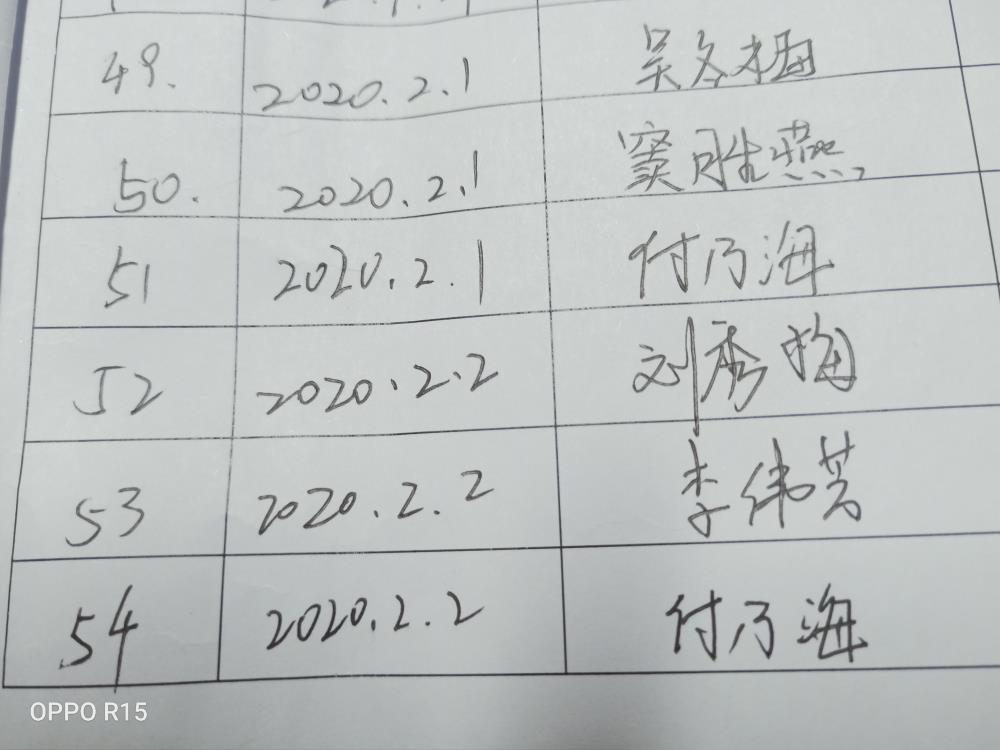 49. 2020.2.1 吴冬梅
50. 2020.2.1 窦胜燕
51 2020.2.1 付乃海
52 2020.2.2 刘秀梅
53 2020.2.2 李伟芳
54 2020.2.2 付乃海
OPPO R15